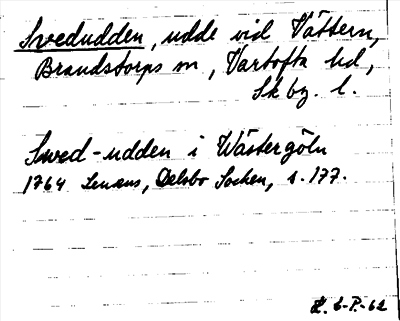 Svedudden, udde vid Vättern,
Brandstorps sn, Vartofta hd,
Skbg. l.
Swed-udden i Wästergöln
1764 Lenæus, Delsbo Sochen, s. 177.
L. E-P.-62